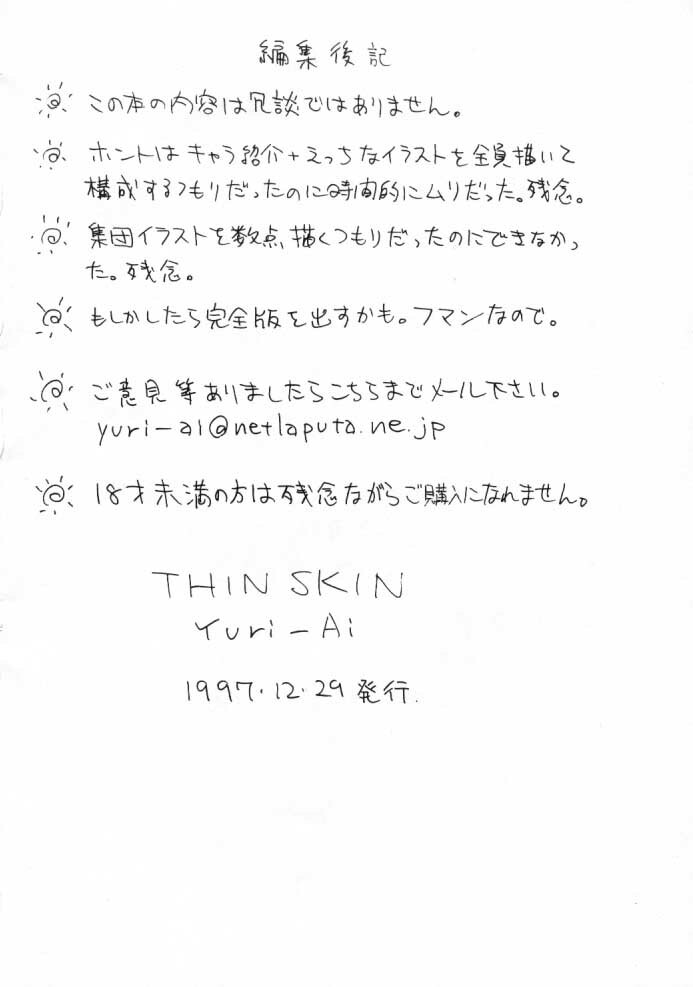 編集後記
この本の内容は冗談ではありません。
ホントはキャラ紹介+えっちなイラストを全員描いて
構成するつもりだったのに時間的にムリだった。残念。
集団イラストを数点描くつもりだったのにできなかっ
た。残念。
もしかしたら完全版を出すかも。フマンなので。
ご意見等ありましたらこちらまでメール下さい。
yuri-ai@netlaputa.ne.jp
18才未満の方は残念ながらご購入になれません。
THIN SKIN
Yuri-Ai
1997.12.29 発行.